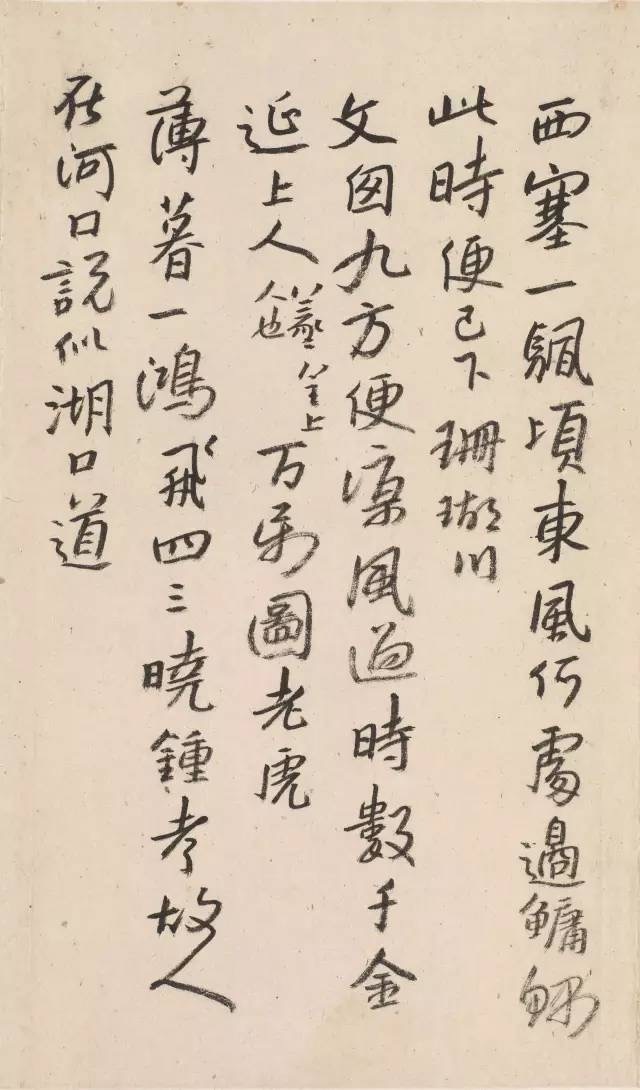 西塞一颿頃東風何處過鱅魦
此時便已下珊瑚川
文図九方便涼風過時數千金
延上人
人也
上
万乐圖老虎
薄暮一鴻飛四三曉鍾考故人
在河口説似湖口道